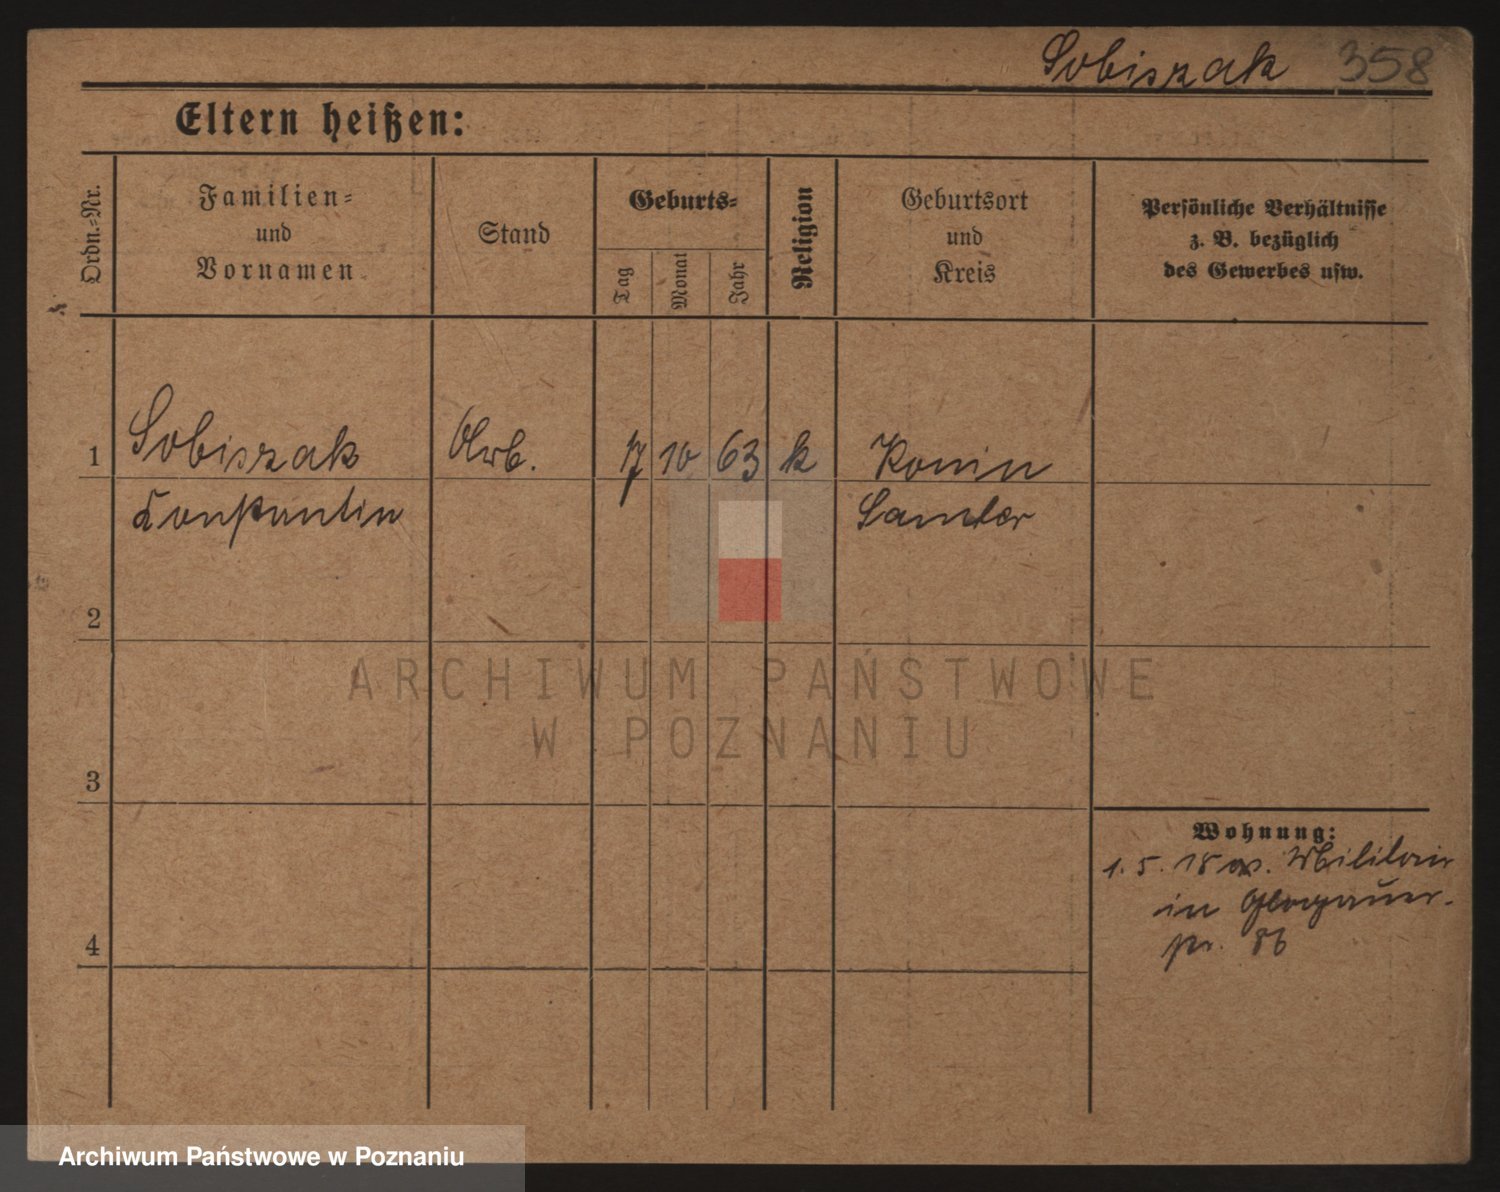 Sobiszak 358
Eltern heißen:
Ordn.-Nr.
Familien-
und
Vornamen
Stand
Geburts-
Tag
Monat
Jahr
Religion
Geburtsort
und
Kreis
Persönliche Verhältnisse
z. B. bezüglich
des Gewerbes usw.
1 Sobiszak Arb. 7 10 63 k Konin
Konstantin Samter
2
3
4
Wohnung:
1. 5. 18 Militair
in Glogauer-
86
ARCHIWUM PAŃSTWOWE
W POZNANIU
Archiwum Państwowe w Poznaniu